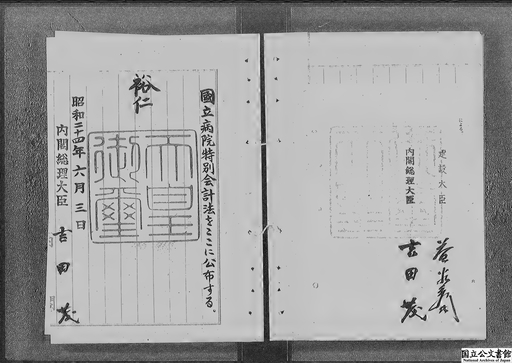 建設大臣
内閣総理大臣
吉田茂
國立病院特別会計法をここに公布する。
裕仁
天皇
御璽
昭和二十四年六月三日
内閣総理大臣
吉田茂
国立公文書館
National Archives of Japan